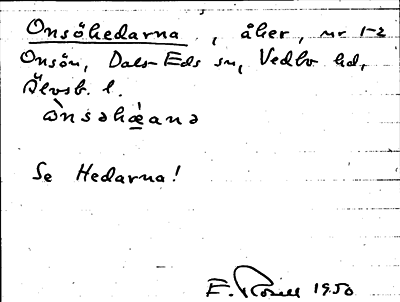 Onsöhedarna, åker, nr 1-2
Onsön, Dals-Eds sn, Vedbo hd,
Älvsb. l.
ὼnsəhæ̀anə
Se Hedarna!
E. 1950